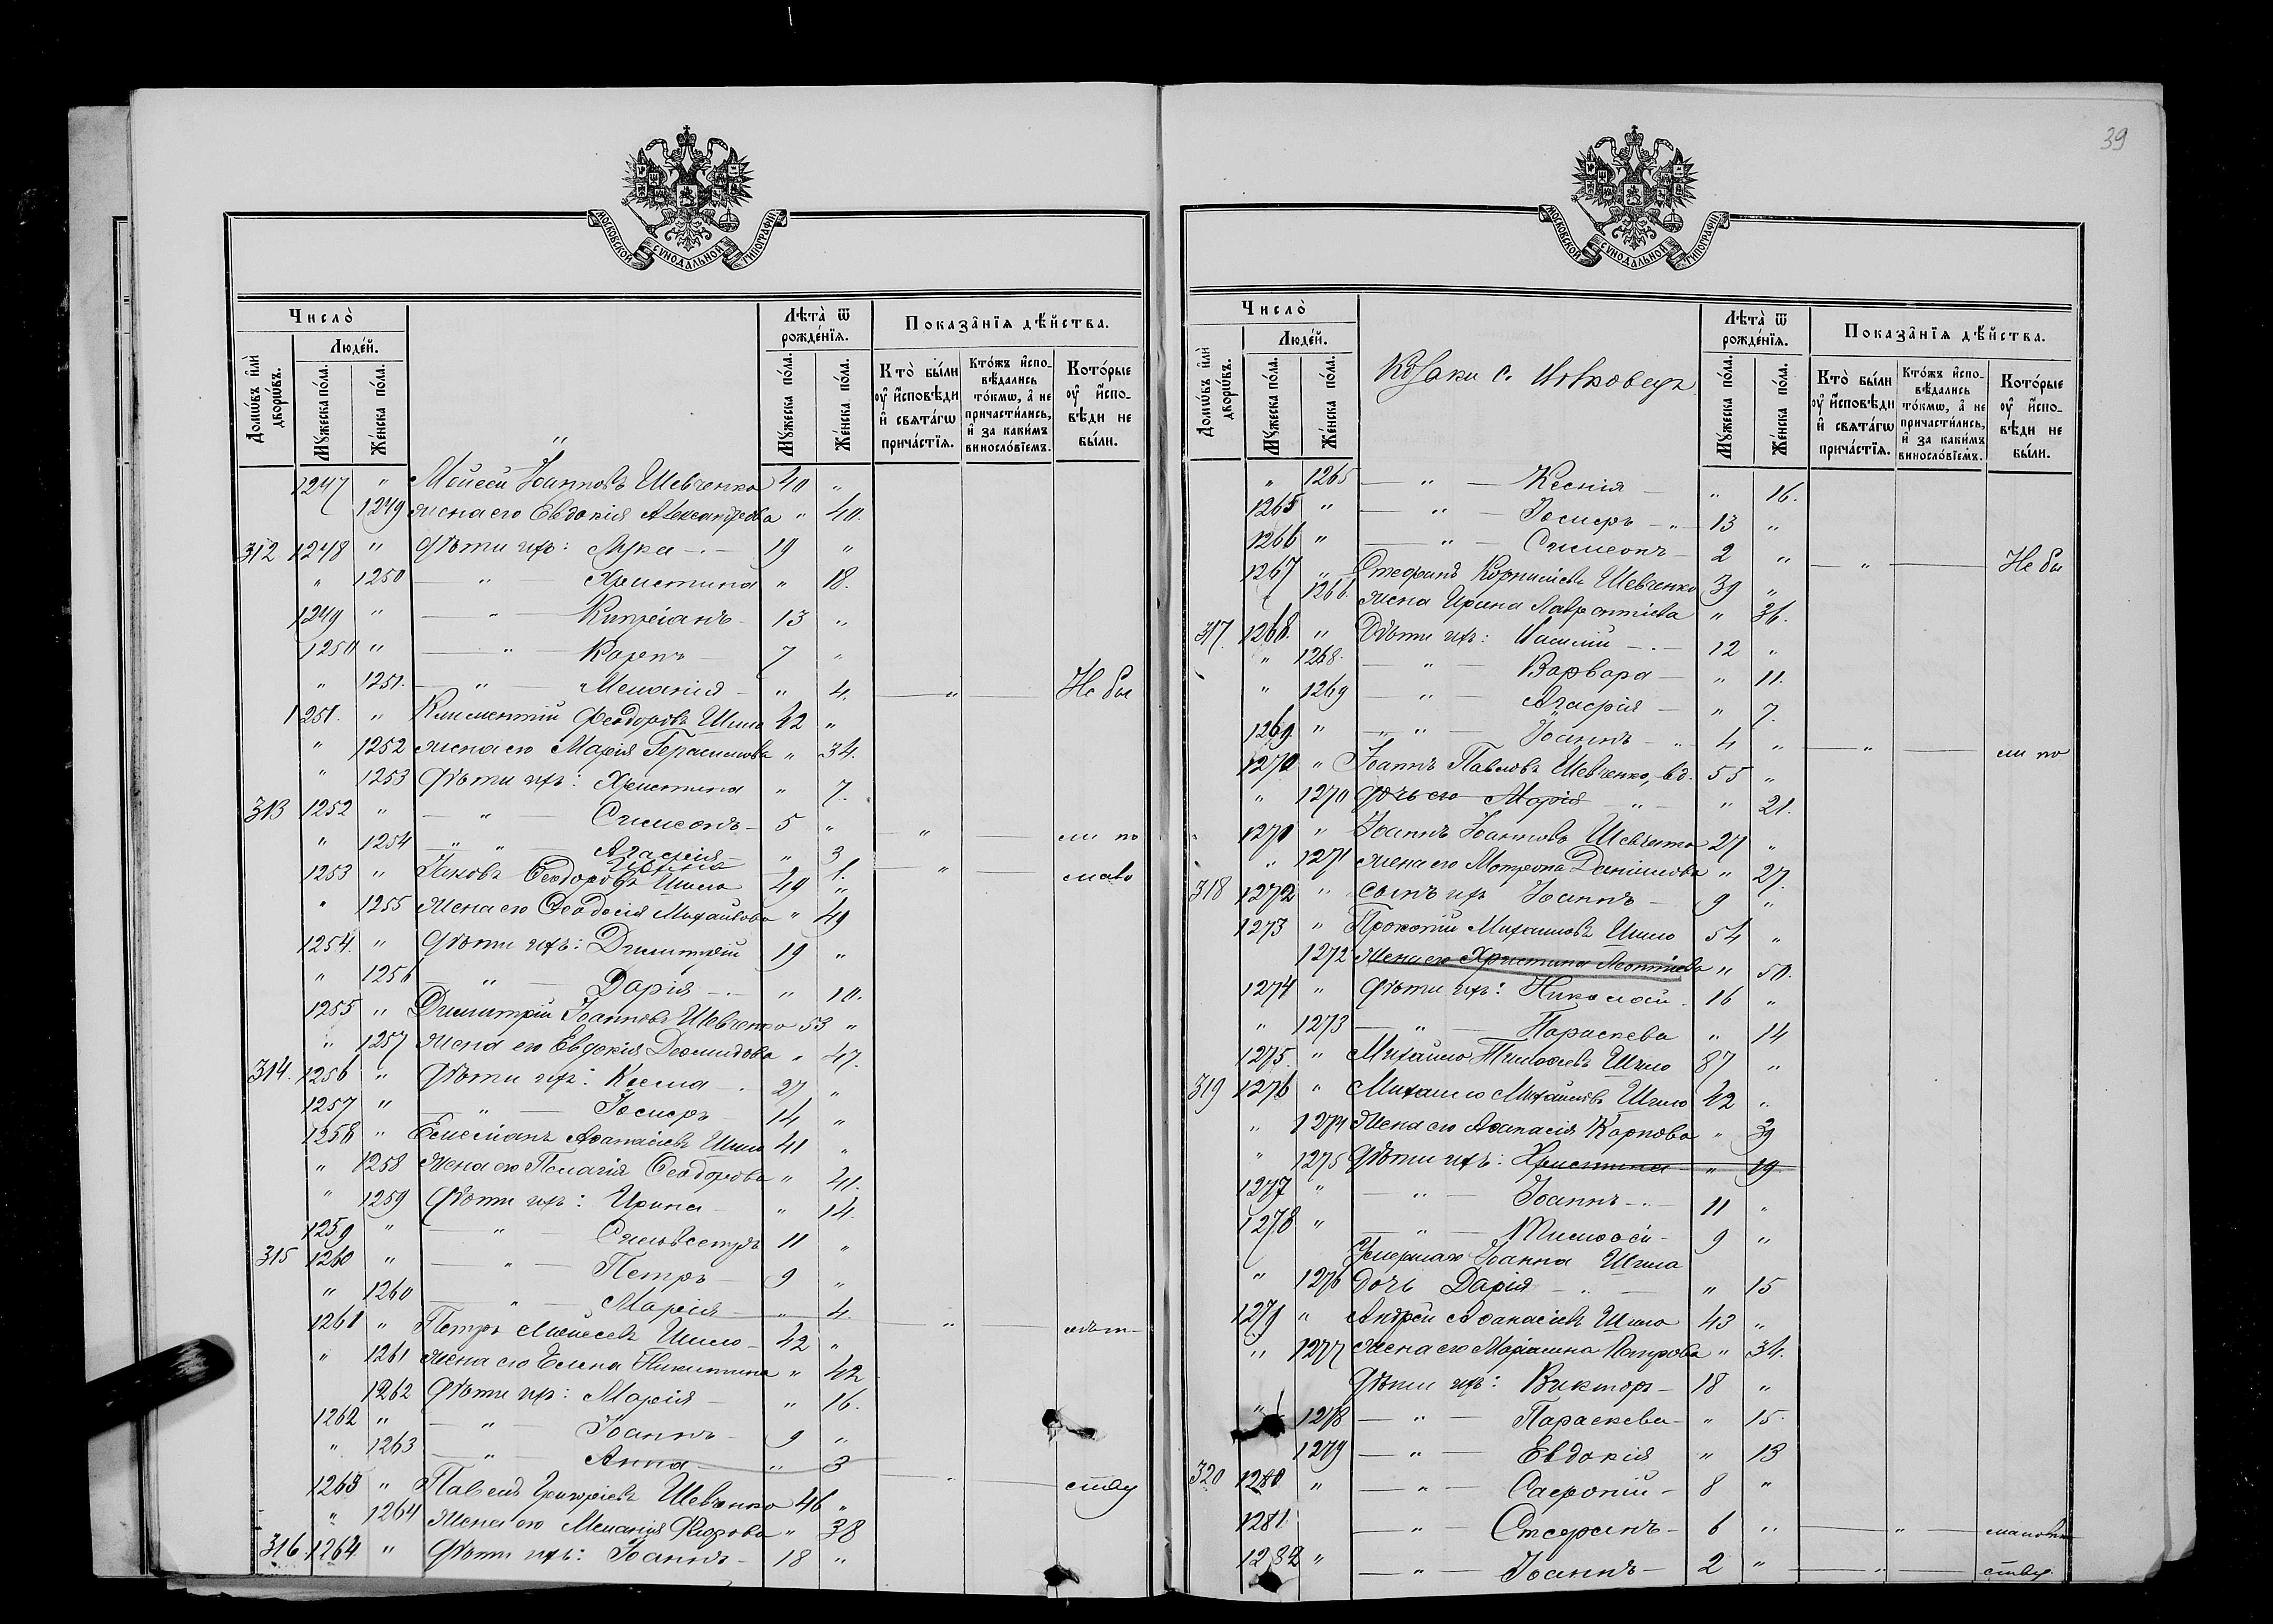 39
МОСКОВСКОЙ СѴНОДАЛЬНОЙ ТИПОГРАФІИ
Число̀
Люде́й.
Домѡ́въ и҆лѝ дворѡ́въ.
Мꙋ́жеска по́ла.
Же́нска по́ла.
Лѣта̀ ѿ рожде́нїѧ.
Мꙋ́жеска по́ла.
Же́нска по́ла.
Показа̑нїѧ дѣ́йства.
Кто̀ бы́ли ᲂу҆ и҆сповѣди и҆ свѧта́гѡ прича́стїѧ.
Кто́жъ и҆спо-вѣ́дались то́кмѡ, а҆ не причасти́лись, и҆ за каки́мъ виносло́вїемъ.
Кото́рые ᲂу҆ и҆спо-вѣди не бы́ли.
"
1247 " Моисей Іоанновъ Шевченко 40 "
1249 жена его Евдокія Александрова " 40.
312 1248 " Дѣти ихъ: Лука 19 "
" 1250 — " — Христина " 18.
1249 " — " — Кипріанъ 13 "
1250 " — " — Карпъ 7 "
" 1251. — " — Меланія " 4. — " — Не бы
1251. " Климентій Феодоровъ Шило 42 "
" 1252 жена его Марія Герасимова " 34.
" 1253 Дѣти ихъ: Христина " 7.
313 1252 " — " — Симеонъ 5 " — " — ли по
" 1254 — " — Агафія " 3
1. " мало
1253 " Іаковъ Феодоровъ Шило 49 "
" 1255 Жена его Феодосія Михайлова " 49
1254. " Дѣти ихъ: Димитрій 19 "
" 1256 — " — Дарія " 10.
1255 " Димитрій Іоанновъ Шевченко 53 "
" 1257 жена его Евдокія Деомидова " 47.
314. 1256 " Дѣти ихъ: Косма 27 "
1257 " — " — Іосифъ 14 "
1258 " Емеліанъ Афанасіевъ Шило 41 "
" 1258 жена его Пелагія Феодорова " 41.
" 1259 Дѣти ихъ: Ирина " 14.
1259 " — " — Сильвестръ 11 "
315 1260 " — " — Петръ 9 "
" 1260 — " — Марія " 4. — " — лѣт-
1261 " Петръ Моисеевъ Шило 42 "
" 1261 жена его Елена Никитина " 42
1262 Дѣти ихъ: Марія " 16.
1262 " — " — Іоаннъ 9 "
" 1263 — " — Анна " 3 — " — ству
1263 " Павелъ Григоріевъ Шевченко 46 "
" 1264 жена его Меланія " 38
316. 1264. " Дѣти ихъ: Іоаннъ 18 "
МОСКОВСКОЙ СѴНОДАЛЬНОЙ ТИПОГРАФІИ
Число̀
Люде́й.
Домѡ́въ и҆лѝ дворѡ́въ.
Мꙋ́жеска по́ла.
Же́нска по́ла.
Козаки с.
Лѣта̀ ѿ рожде́нїѧ.
Мꙋ́жеска по́ла.
Же́нска по́ла.
Показа̑нїѧ дѣ́йства.
Кто̀ бы́ли ᲂу҆ и҆сповѣди и҆ свѧта́гѡ прича́стїѧ.
Кто́жъ и҆спо-вѣ́дались то́кмѡ, а҆ не причасти́лись, и҆ за каки́мъ виносло́вїемъ.
Кото́рые ᲂу҆ и҆спо-вѣди не бы́ли.
" 1265 — " — Ксенія " 16.
1265 " — " — Іосифъ 13 "
1266 " — " — Симеонъ 2 " — " — Не бы
1267 " Стефанъ Корниліевъ Шевченко 39 "
1266. жена Ирина Лаврентіева " 36.
317. 1268. " Дѣти ихъ: Василій 12 "
" 1268. — " — Варвара " 11.
" 1269 — " — Агафія " 7.
1269. " — " — Іоаннъ 4 " — " — ли по
1270 " Іоаннъ Павловъ Шевченко, вд. 55 "
" 1270 Дочь его Марія " 21.
1270 " Іоаннъ Іоанновъ Шевченко 27 "
" 1271 жена его Матрона " 27.
318 1272 " сынъ ихъ Іоаннъ 9 "
1273 " Прокопій Михаиловъ Шило 54 "
1272 Жена его Христина Леонтіева " 50.
1274 " Дѣти ихъ: Николай 16 "
" 1273 — " — Параскева " 14
1275. " Михаилъ Тимофеевъ Шило 87 "
319 1276 " Михаилъ Михайловъ Шило 42 "
" 1274 Жена его Афанасія Карпова " 39
" 1275 Дѣти ихъ: Христина " 19
1277 " — " — Іоаннъ 11 "
1278 " — " — Тимофей 9 "
Умершаго Іоанна Шила
" 1276 дочь Дарія " 15
1279 " Андрей Афанасіевъ Шило 43 "
" 1277 жена его Маріамна Петрова " 34.
Дѣти ихъ: Викторъ 18 "
" 1278 — " — Параскева " 15.
1279 — " — Евдокія " 13
320 1280 " — " — Сафроній 8 "
1281 — " — Стефанъ 6 " — " —
1282 " — " — Іоаннъ 2 " — " — ству.